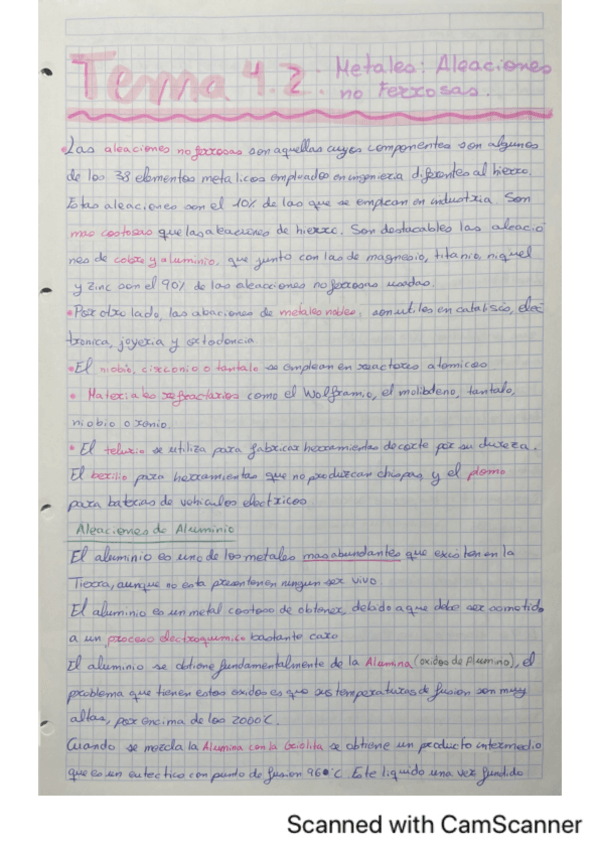 Tema 4.2: Metales: Aleaciones
no ferrosas.
• Las aleaciones no ferrosas son aquellas cuyos componentes son algunos
de los 38 elementos metalicos empleados en ingenieria diferentes al hierro.
Estas aleaciones son el 10% de las que se emplean en industria. Son
mas costosas que las aleaciones de hierro. Son destacables las aleacio
nes de cobre y aluminio, que junto con las de magnesio, titanio, niquel
y zinc son el 90% de las aleaciones no ferrosas usadas.
• Por otro lado, las aleaciones de metales nobles, son utiles en catalisis, elec
tronica, joyeria y ortodoncia.
• El niobio, circonio o tantalo se emplean en reactores atomicos
• Materiales refractarios como el Wolframio, el molibdeno, tantalo,
niobio o renio.
• El telurio se utiliza para fabricar herramientas de corte por su dureza.
El berilio para herramientas que no produzcan chispas, y el plomo
para baterias de vehiculos electricos
Aleaciones de Aluminio
El aluminio es uno de los metales mas abundantes que existen en la
Tierra, aunque no esta presente en ningun ser vivo.
El aluminio es un metal costoso de obtener, debido a que debe ser sometido
a un proceso electroquimico bastante caro
El aluminio se obtiene fundamentalmente de la Alumina (oxidos de Aluminio), el
problema que tienen estos oxidos es que sus temperaturas de fusion son muy
altas, por encima de los 2000°C.
Cuando se mezcla la Alumina con la Criolita se obtiene un producto intermedio
que es un eutectico con punto de fusion 960°C. Este liquido una vez fundido
Scanned with CamScanner